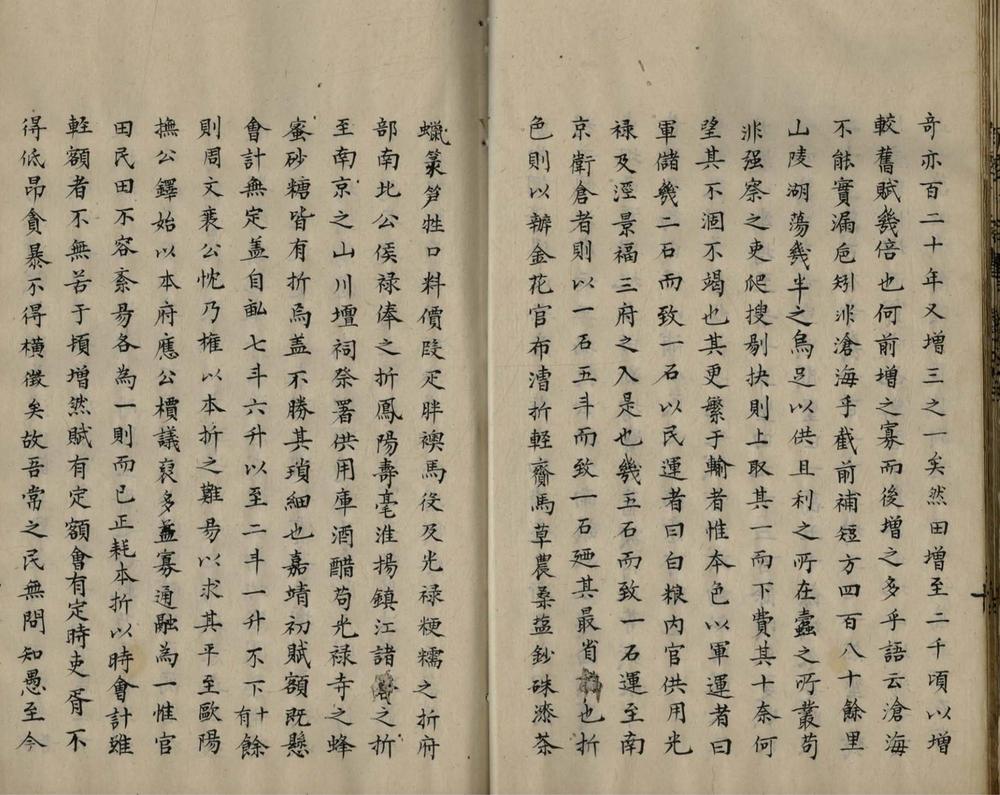 奇亦百二十年又增三之一矣然田增至二千頃以增
較舊賦幾倍也何前增之寡而後增之多乎語云滄海
不能實漏巵矧非滄海乎截前補短方四百八十餘里
山陵湖蕩幾半之烏足以供且利之所在蠹之所叢苟
非强察之吏爬搜剔抉則上取其一而下費其十奈何
望其不涸不竭也其更繁于輸者惟本色以軍運者曰
軍儲幾二石而致一石以民運者曰白粮内官供用光
禄及涇景福三府之入是也幾五石而致一石運至南
京衛倉者則以一石五斗而致一石廼其最省也折
色則以辦金花官布漕折輕齎馬草農桑盐鈔硃漆茶
蠟菉笋牲口料價陵疋胖襖馬役及光禄粳糯之折府
部南北公侯禄俸之折鳳陽壽亳淮揚鎮江諸之折
至南京之山川壇祠祭署供用庫酒醋苟光禄寺之蜂
蜜砂糖皆有折烏盖不勝其瑣細也嘉靖初賦額既懸
會計無定盖自畝七斗六升以至二斗一升不下十有餘
則周文襄公忱乃権以本折之難昜以求其平至歐陽
撫公鐸始以本府應公檟議裒多益寡通融為一惟官
田民田不容紊昜各為一則而已正耗本折以時會計雖
軽額者不無苦于頃增然賦有定額會有定時吏胥不
得低昂貪暴不得横徵矣故吾常之民無問知愚至今